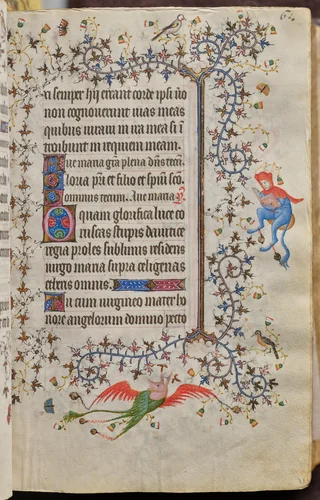 ri semper hii errant corde ipsi vō
non cognoverunt vias meas
quibus iuravi in ira mea si ī
troibunt in requiem meam.
Ave maria gr̄a plena dn̄s tecū.
Gloria pr̄i et filio et spūi scō.
dominus tecum. Ave maria.
O quam glorifica luce co
ruscas stirpis davitice
regia proles sublimis residens
virgo maria supra celigenas
etheris omnis.
Tu cum virgineo mater ho
nore angelorum domino pecto